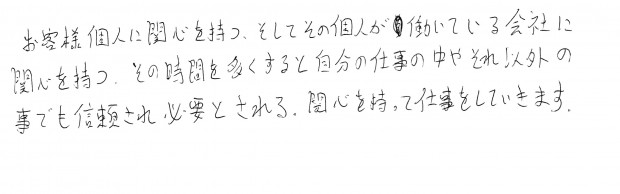 お客様個人に関心を持つ、そしてその個人が働いている会社に
関心を持つ、その時間を多くすると自分の仕事の中やそれ以外の
事でも信頼され必要とされる。関心を持って仕事をしていきます。